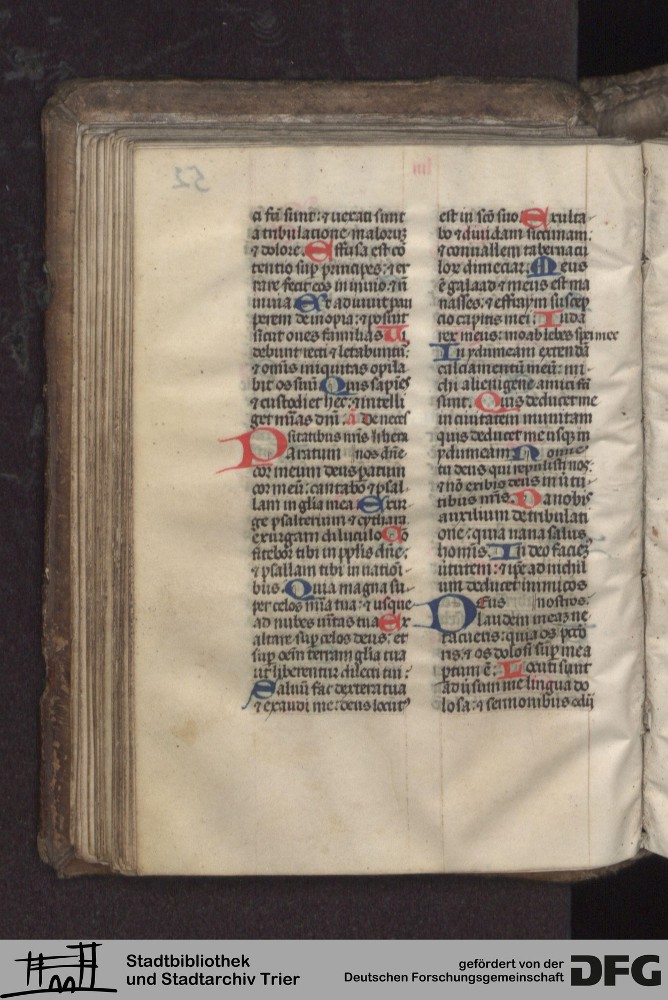 52
ci st̄ sunt: ⁊ uexati sunt
a tribulatione maloruꝫ
⁊ dolore. Effusa est cō
tentio sup principes: ⁊ er
rare fecit eos in inuio: ⁊ nō
in uia. Et adiuuit pau
perem de inopia: ⁊ posuit
sicut oues familias. Ui
debunt recti ⁊ letabuntur:
⁊ omīs iniquitas opila
bit os suū. Quis sapiēs
⁊ custodiet hec: ⁊ intelli
get mīas dn̄i. a De neces
sitatibus nr̄is libera
Paratum nos dn̄e
cor meum deus paratum
cor meū: cantabo ⁊ psal
lam in glīa mea. Exur
ge psalterium ⁊ cythara
exurgam diluculo. Co
fitebor tibi in pplis dn̄e:
⁊ psallam tibi in natioī
bus. Quia magna su
per celos mīa tua: ⁊ usque
ad nubes ūitas tua. Ex
altare sup celos deus: et
sup oēm terram glīa tua
ut liberentur dilecti tui:
Saluū fac dextera tua
⁊ exaudi me: deus locut⁹
est in sc̄o suo. Exulta
bo ⁊ diuidam siccimam:
⁊ conuallem tabernacu
lorꝫ dimeciar. Meus
ē galaad ⁊ meus est ma
nasses: ⁊ effraym suscep
cio capitis mei. Iuda
rex meus: moab lebes spei mee
In ydumeam extendā
calciamentū meū: mi
chi alienigene amici fc̄i
sunt. Quis deducet me
in ciuitatem munitam
quis deducet me usqꝫ in
ydumeam. Nonne
tu deus qui repulisti nos:
⁊ nō exibis deus in uirtu
tibus nr̄is. Da nobis
auxilium de tribulati
one: quia uana salus
hominis. In deo faciemꝰ
uirtutem: ⁊ ip̄e ad nichil
um deducet inimicos
Deus nostros.
laudem meam ne
tacueris: quia os pctō
ris: ⁊ os dolosi sup me a
ptum ē. Locuti sunt
aduersum me lingua do
losa: ⁊ sermonibus odii
Stadtbibliothek
und Stadtarchiv Trier
gefördert von der
Deutschen Forschungsgemeinschaft
DFG